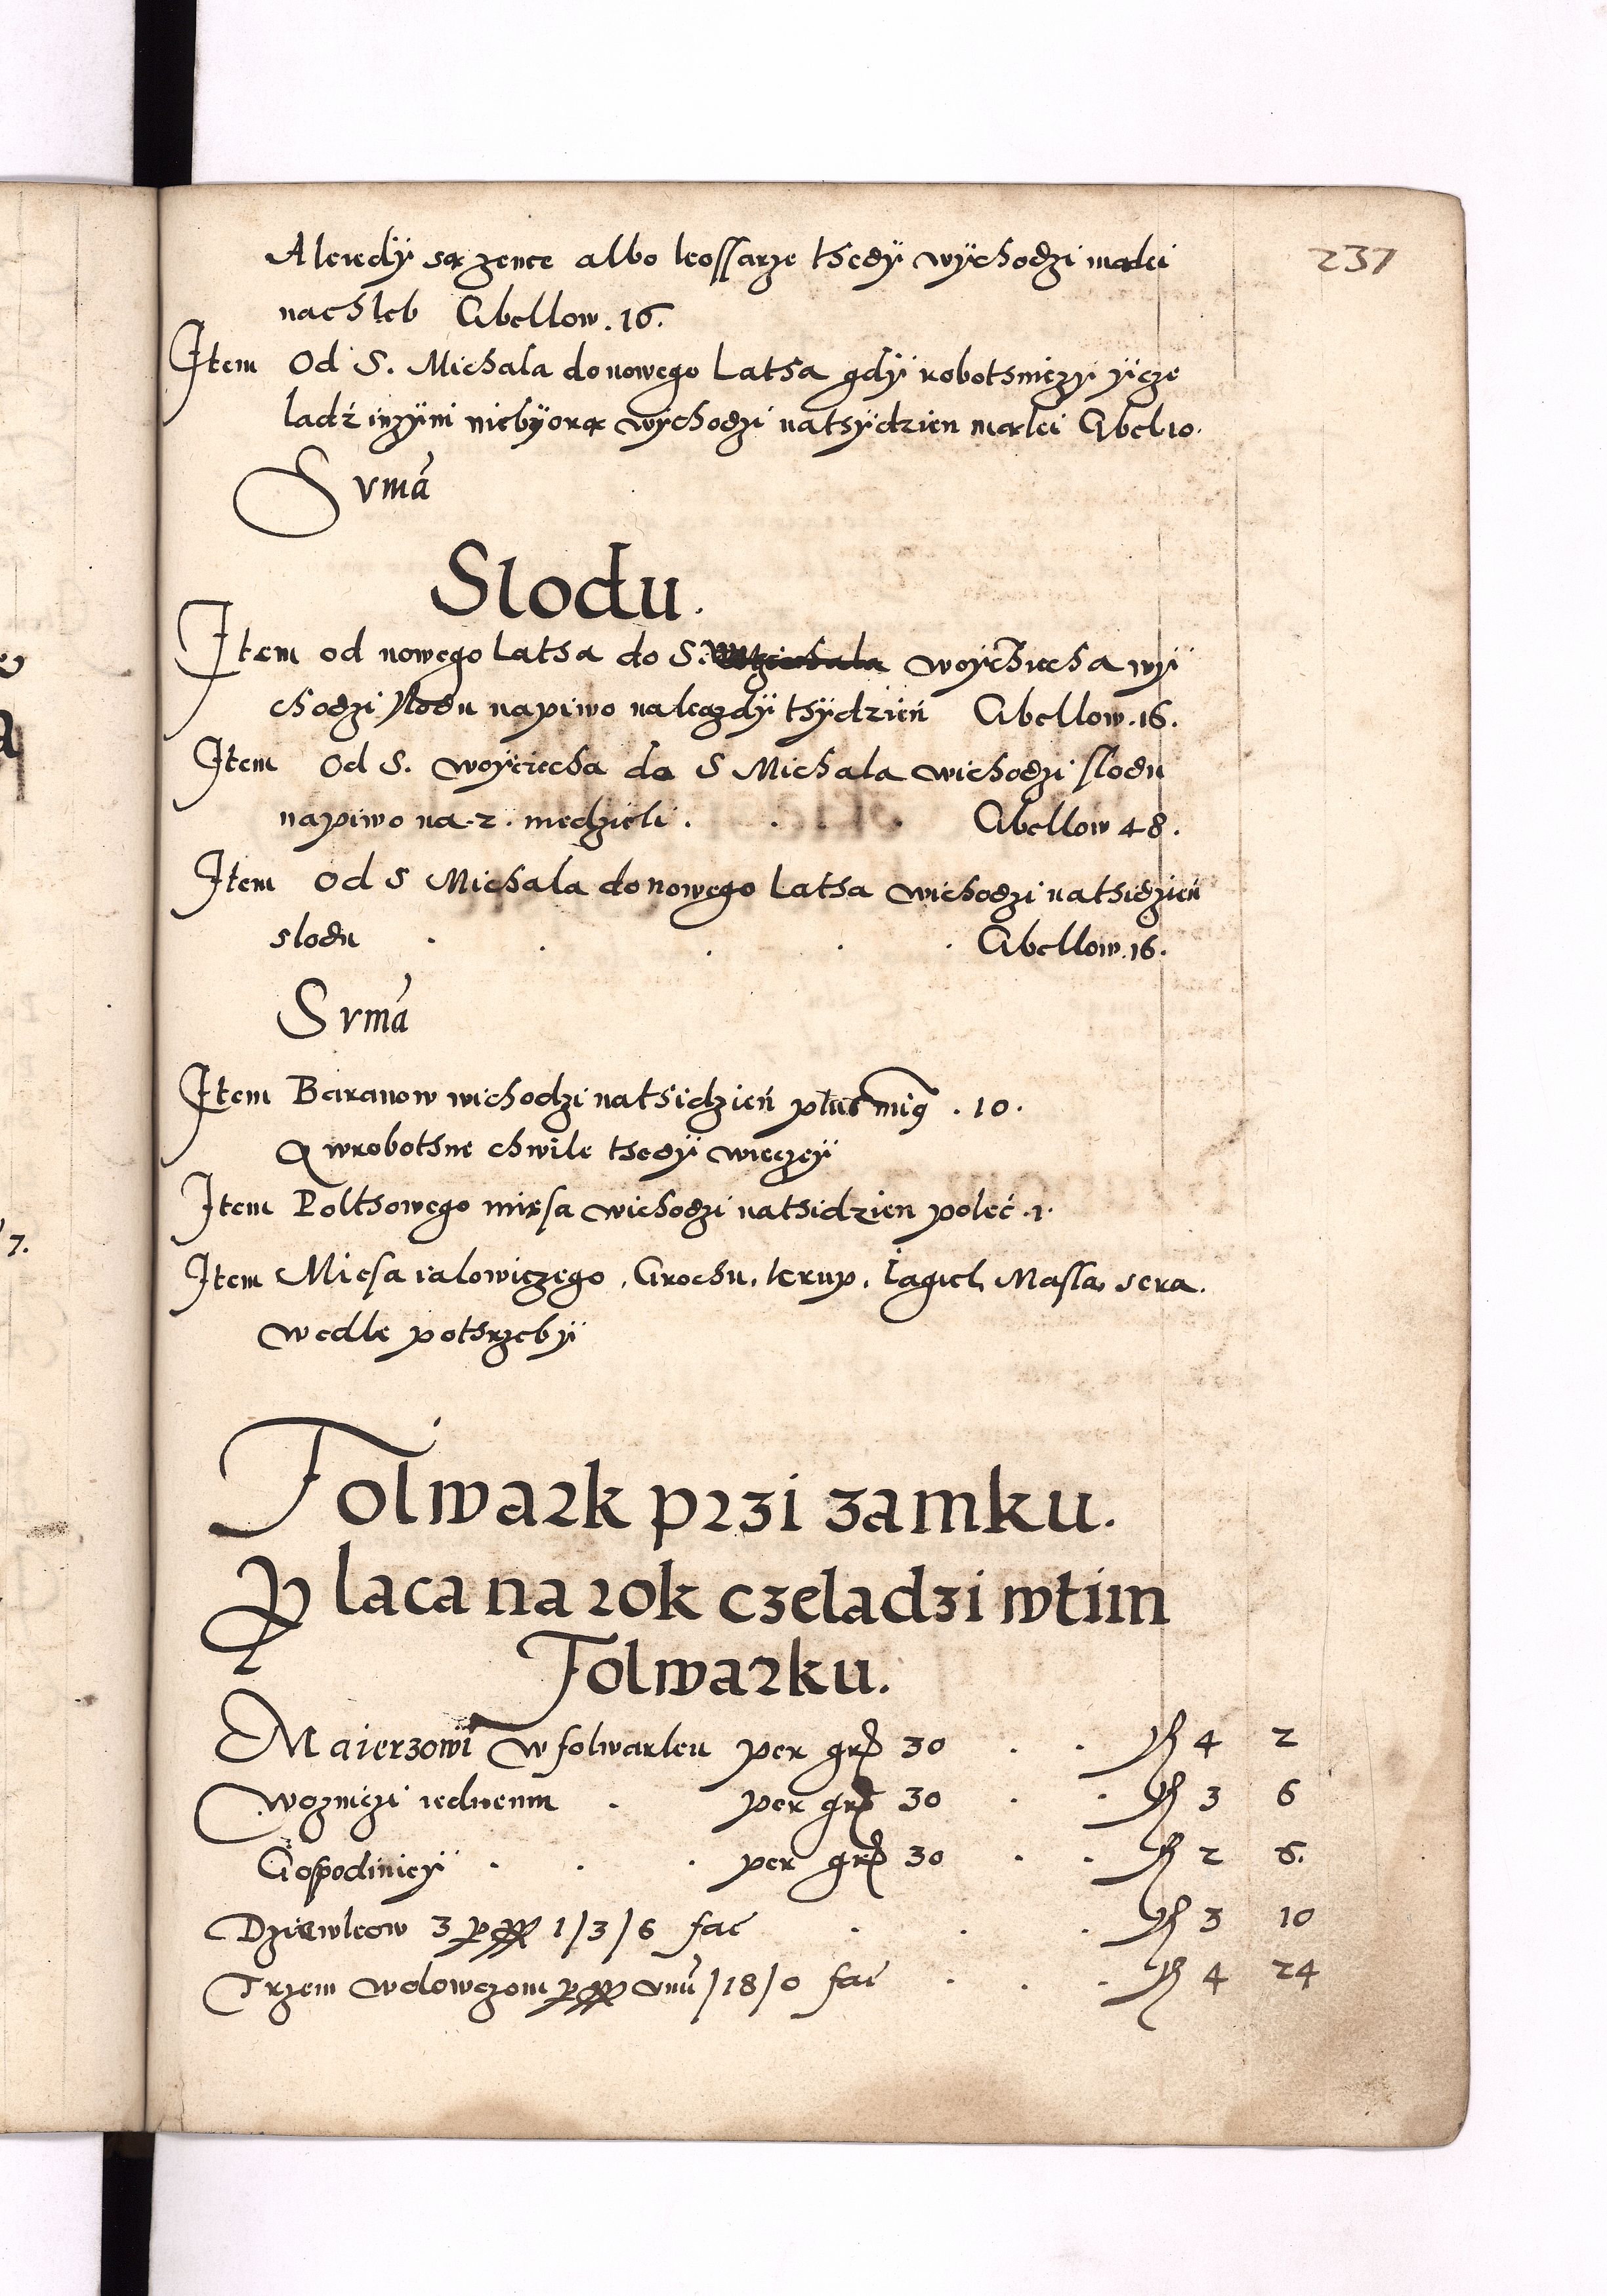 237
A kiedÿ są zence albo kossarze thedÿ wÿchodzi mąki
nachleb Gbellow . 16.
Item Od S. Michala do nowego Latha gdÿ robothniczÿ ÿ cze
ladź inzÿni niebÿorą wÿchodzi natsÿdzien mąki Gbel 10.
Summa
Slodu.
Item od nowego Latha do S. woyciecha wÿ
chodzi slodu napiwo nakazdÿ tsÿdzień Gbellow . 16.
Item Od S. woyciecha do S Michala wichodzi slodu
napiwo na . 2 . niedzieli . Gbellow 48.
Item Od S Michala do nowego Latha wichodzi natsidzień
slodu . . . . . Gbellow . 16.
Summa
Item Baranow wichodzi natsidzień . 10 .
A wrobothne chwile thedÿ wieczeÿ
Item Polthowego miesa wichodzi natsidzien poleć . 1 .
Item Miesa ialowiczego , Grochu , krup , iagiel, Masla, sera .
wedle pothrzebÿ
Folwark przi zamku.
Placa na rok czeladzi wtim
Folwarku.
Maierzowi w folwarku per grd 30 . . 4 2
wozniczi iednemu . per grd 30 . . 3 6
Gospodiniey . . . per grd 30 . . 2 6.
Dziewkow 3 1/3/6 fac . . . 3 10
Trzem wolowczom /18/0 fac . . . 4 24